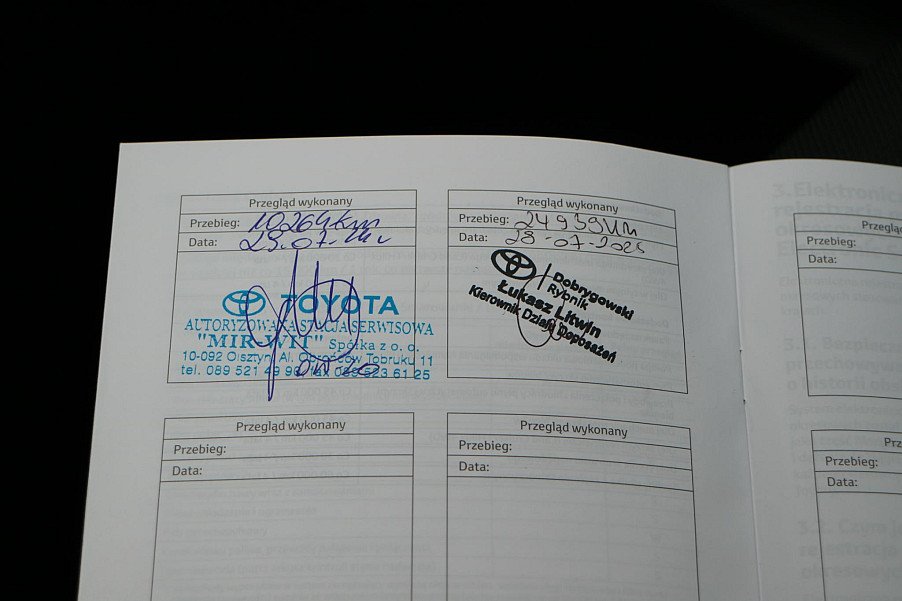 Przegląd wykonany
Przebieg: 10264km
Data: 29.07.
TOYOTA
AUTORYZOWANA STACJA SERWISOWA
"MIR-WIT" Spółka z o. o.
10-092 Olsztyn, Al. Obrońców Tobruku 11
tel. 089 521 49 90, fax 089 523 61 25
Przegląd wykonany
Przebieg: 24939km
Data: 28-07-2025
Dobrygowski
Rybnik
Łukasz Litwin
Kierownik Działu Doposażeń
Przegląd wykonany
Przebieg:
Data:
Przegląd wykonany
Przebieg:
Data:
3. Elektroniczn
rejestracj
Przeglą
Przebieg:
Data:
o historii
Prz
Przebieg:
Data:
3.2.
rejestracj
okresowy